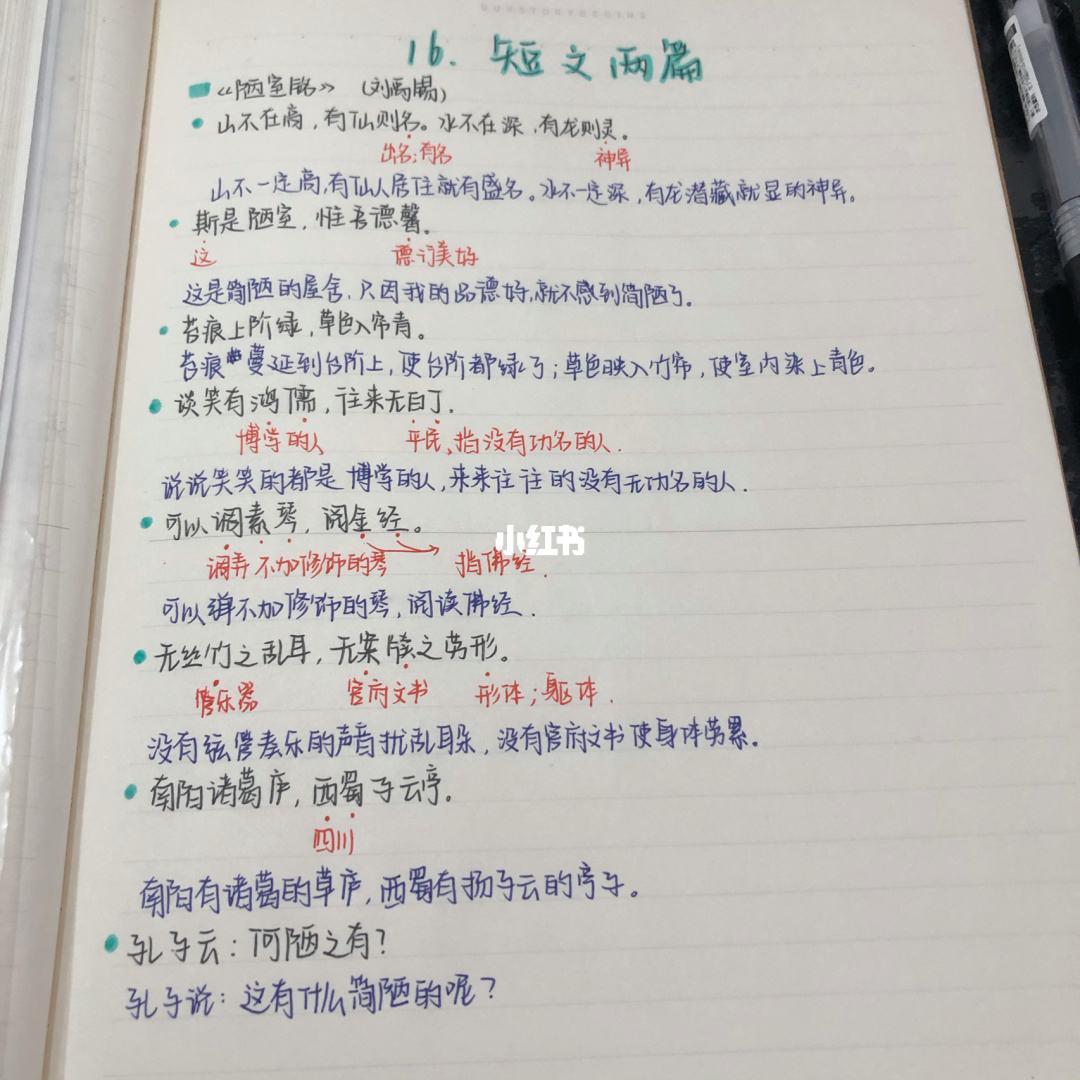 16. 短文两篇
《陋室铭》 (刘禹锡)
山不在高，有仙则名。水不在深，有龙则灵。
出名；有名 神异
山不一定高，有仙人居住就有盛名。水不一定深，有龙潜藏就显的神异。
斯是陋室，惟吾德馨。
这 德行美好
这是简陋的屋舍，只因我的品德好，就不感到简陋了。
苔痕上阶绿，草色入帘青。
苔痕蔓延到台阶上，使台阶都绿了；草色映入竹帘，使室内染上青色。
谈笑有鸿儒，往来无白丁。
博学的人 平民，指没有功名的人.
说说笑笑的都是博学的人，来来往往的没有无功名的人.
可以调素琴，阅金经。
调弄 不加修饰的琴 指佛经.
小红书
可以弹不加修饰的琴，阅读佛经.
无丝竹之乱耳，无案牍之劳形。
管乐器 官府文书 形体；躯体.
没有弦管奏乐的声音扰乱耳朵，没有官府文书使身体劳累。
南阳诸葛庐，西蜀子云亭。
四川
南阳有诸葛的草庐，西蜀有扬子云的亭子。
孔子云：何陋之有？
孔子说：这有什么简陋的呢？